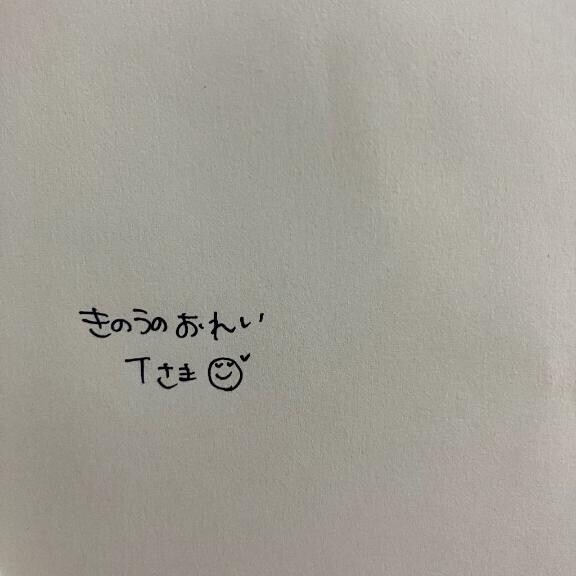 きのうのおれい
Tさま